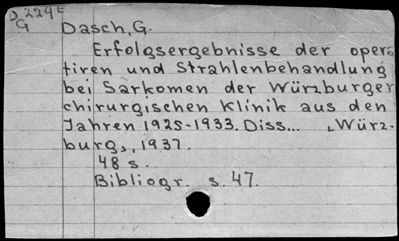 D.229E
G
Dasch,G.
Erfolgsergebnisse der opera
tiren und Strahlenbehandlung
bei Sarkomen der Würzburger
chirurgischen Klinik aus den
Jahren 1925-1933. Diss... ,Würz-
burg,, 1937.
48 s.
Bibliogr. s. 47.